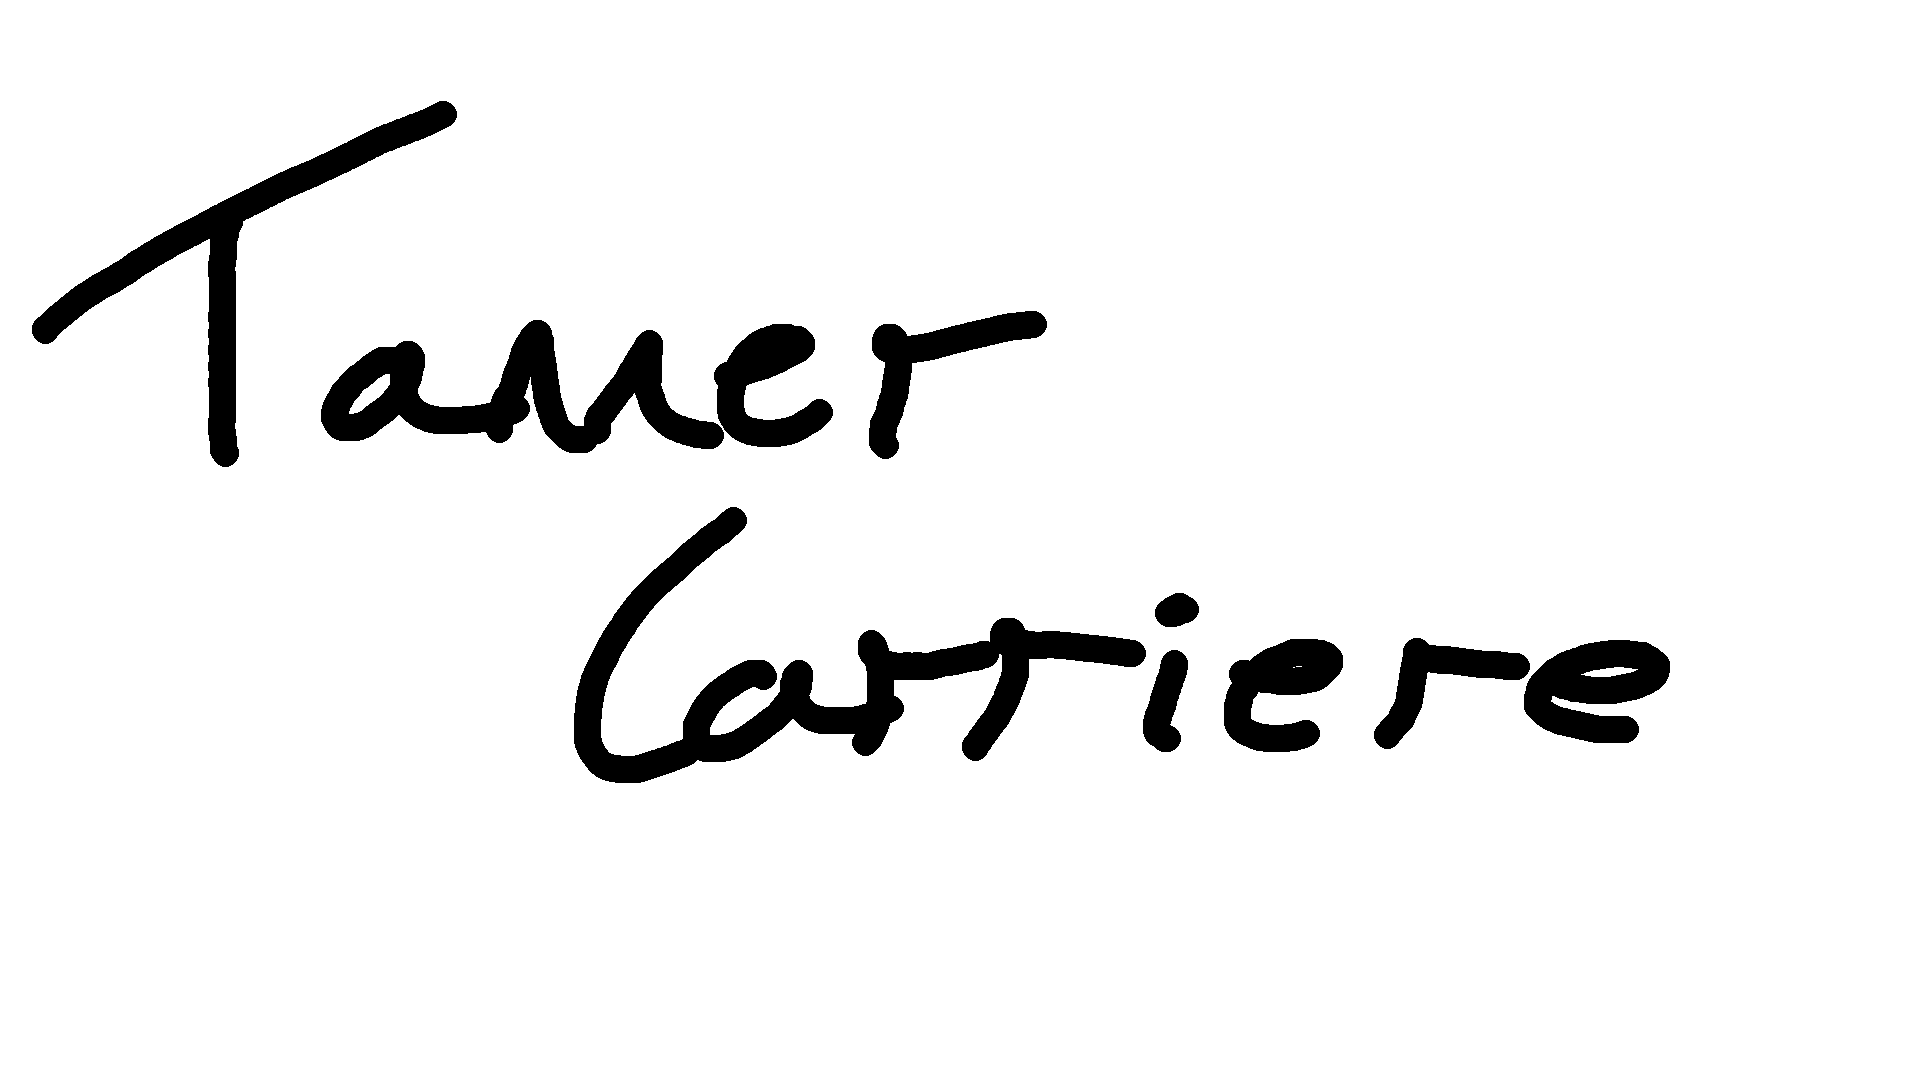 Tamer
Carriere